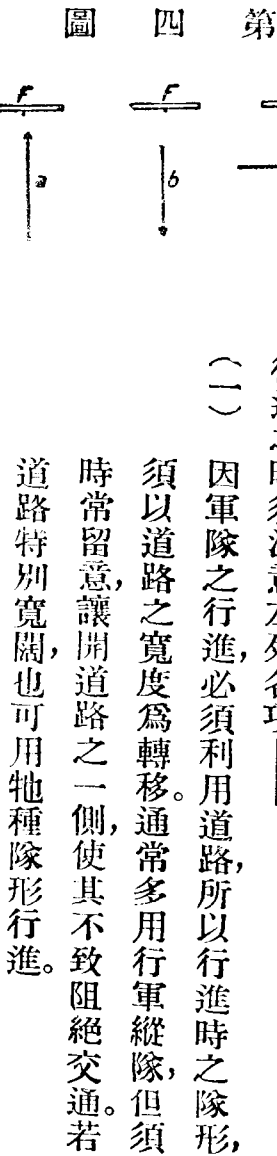 第四圖
F
F
b
a
意左列各項
(一) 因軍隊之行進，必須利用道路，所以行進時之隊形，
須以道路之寬度爲轉移。通常多用行軍縱隊，但須
時常留意，讓開道路之一側，使其不致阻絕交通。若
道路特別寬闊，也可用牠種隊形行進。